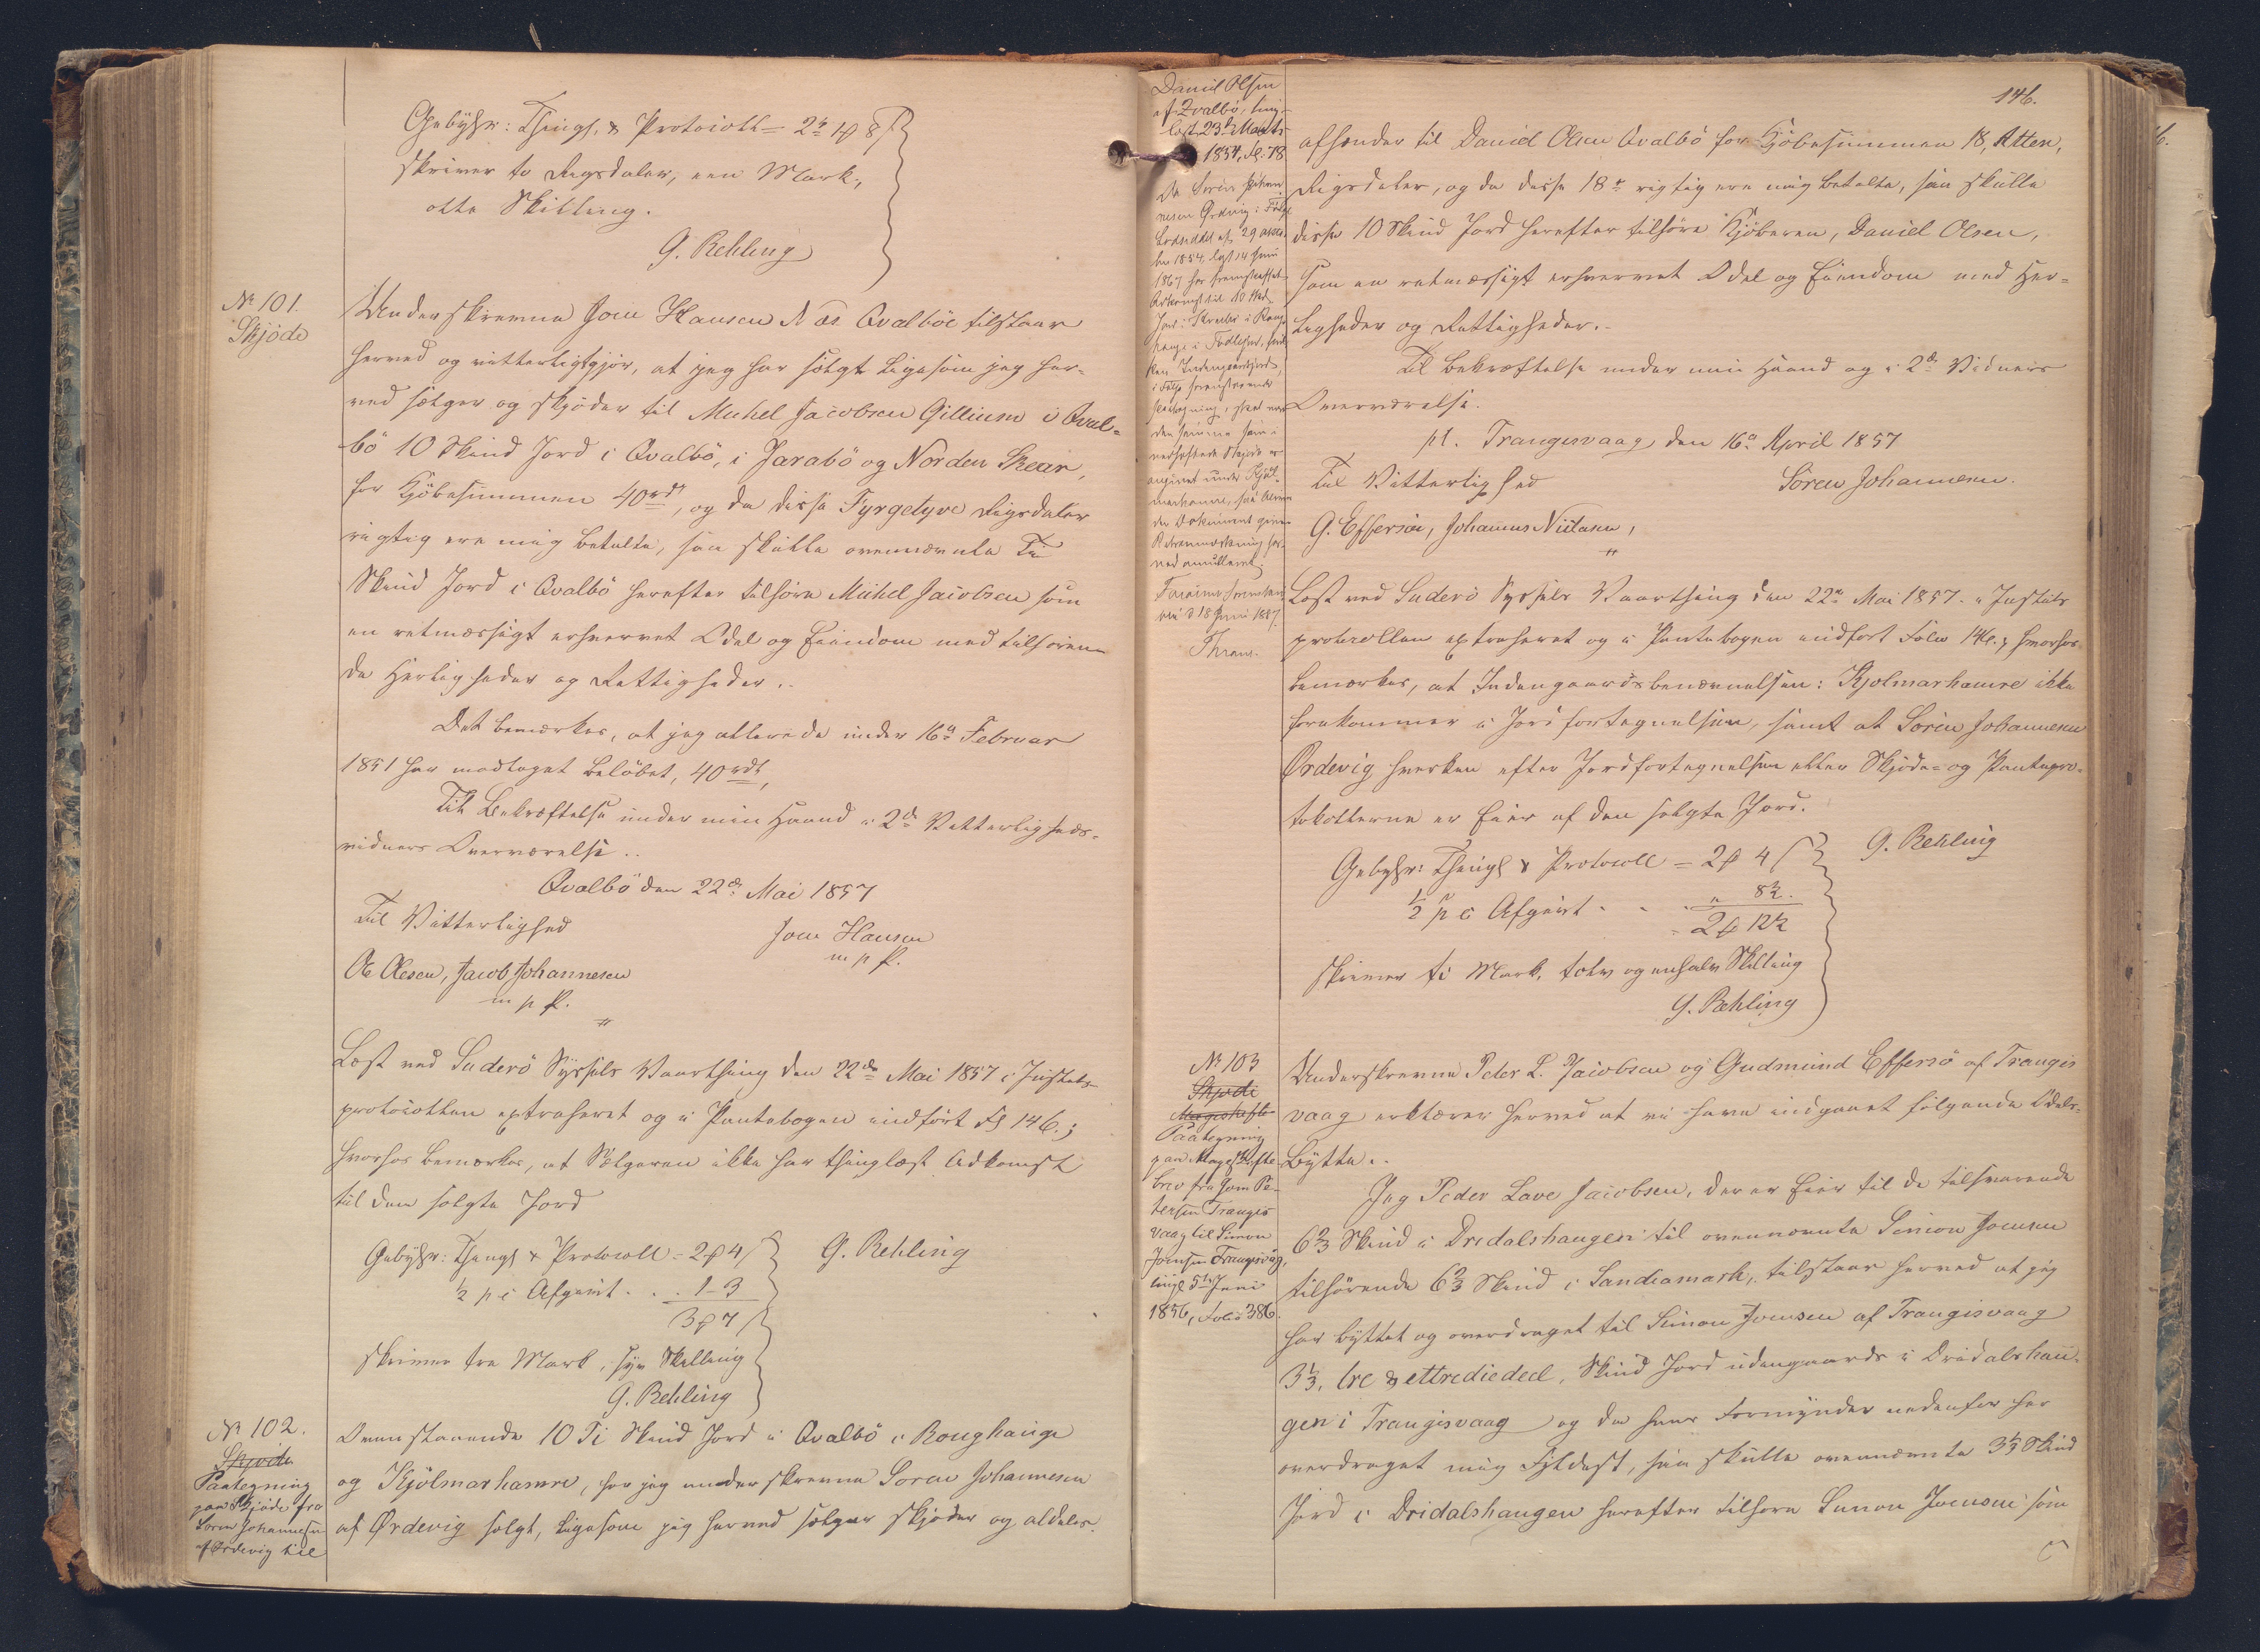 Gebyhr: Thingl. & Protocoll = 2 rd 1 # 8 ß
skriver to Rigsdaler, een Mark,
otte Skilling.
G. Rehling
№ 101.
Skjöde
Underskrevne Joen Hansen N æs Qvalböe tilstaaer
herved og vitterliggjör, at jeg har solgt ligesom jeg her-
ved sælger og skjöder til Michel Jacobsen Gillium i Qval-
bö 10 Skind Jord i Qvalbö, i Jarabö og Norden Skear,
for Kjöbesummen 40 rd, og da disse Fyrgetyve Rigsdaler
rigtig ere mig betalte, saa skulle ovennævnte Ti
Skind Jord i Qvalbö herefter tilhöre Michel Jacobsen som
en retmæssigt erhvervet Odel og Eiendom med tilhören-
de Herligheder og Rettigheder.
Det bemærkes, at jeg allerede under 16de Februar
1851 har modtaget Belöbet, 40 rd,
Til Bekræftelse under min Haand i 2de Vitterligheds-
vidners Overværelse.
Qvalbö den 22de Mai 1857
Til Vitterlighed
Joen Hansen
m p P.
Ole Olesen, Jacob Johannesen
m p P.
Læst ved Suderö Syssels Vaarthing den 22de Mai 1857 i Justits-
protocollen extraheret og i Pantebogen indfört Fol 146.;
hvorhos bemærkes, at Sælgeren ikke har thinglæst Adkomst
til den solgte Jord
Gebyhr: Thingl & Protocoll = 2 # 4 ß
G. Rehling
½ p c Afgivt . . . 1 - 3
3 # 7 ß
skriver tre Mark, syv Skilling
G. Rehling
№ 102.
Skjöde
Paategning
paa Skjöde fra
Sören Johannesen
af Ördevig til
Ovenstaaende 10 Ti Skind Jord i Qvalbö i Roughauge
og Kjölmarhamre, har jeg underskrevne Sören Johannesen
af Ørdevig solgt, ligesom jeg herved sælger skjöder og aldeles
Daniel Olsen
af Qvalbö, ting-
læst 23de Marts
1854, Fol. 78
Da Sören Johan-
nesen Ördevig i Fölge
1867 har
Adkomst til 10 Skd.
Thran.
146.
afhænder til Daniel Olsen Qvalbö for Kjöbesummen 18, Atten,
Rigsdaler, og da disse 18 rd rigtig ere mig betalte, saa skulle
disse 10 Skind Jord herefter tilhöre Kjöberen, Daniel Olsen,
som en retmæssigt erhvervet Odel og Eiendom med Her-
ligheder og Rettigheder.-
Til Bekræftelse under min Haand og i 2de Vidners
Overværelse.
pt. Trangisvaag, den 16de April 1857
Til Vitterlighed
Sören Johannesen.
G. Effersöe, Johannes Nielsen,
Læst ved Suderö Syssels Vaarthing den 22de Mai 1857. i Justits
protocollen extraheret og i Pantebogen indfört Folio 146.; hvorhos
bemærkes, at Indengaardsbenævnelsen: Kjolmarhamre ikke
forekommer i Jordfortegnelsen, samt at Sören Johannesen
Ørdevig hverken efter Jordfortegnelsen eller Skjöde- og Pantepro-
tokollerne er Eier af den solgte Jord.
Gebyhr: Thingl & Protocoll = 2 # 4 ß
G. Rehling
½ p c Afgivt . . . " 8½.
2 # 12½
skriver to Mark, tolv og enhalv Skilling
G. Rehling
№ 103
Skjöde
Mageskifte
Paategning
paa Mageskifte-
brev fra Joen Pe-
tersen Trangis
vaag til Simon
Joensen Trangisvåg,
tingl 5te Juni
1856, Folio 386.
Underskrevne Peter L. Jacobsen og Gudmund Effersö af Trangis
vaag erklærer herved at vi have indgaaet fölgende Odels-
Bytte.
Jeg Peder Love Jacobsen, der er Eier til de tilsvarende
6⅔ Skind i Dridalshaugen til ovennævnte Simon Joensen
tilhörende 6⅔ Skind i Sandramark, tilstaar herved at jeg
har byttet og overdraget til Simon Joensen af Trangisvaag
3⅓, tre & ettrediedeel, Skind Jord udengaards i Dridalshau-
gen i Trangisvaag og da hans Formynder nedenfor har
overdraget mig Fyldest, saa skulle ovennævnte 3⅓ Skind
Jord i Dridalshaugen herefter tilhöre Simon Joensen som